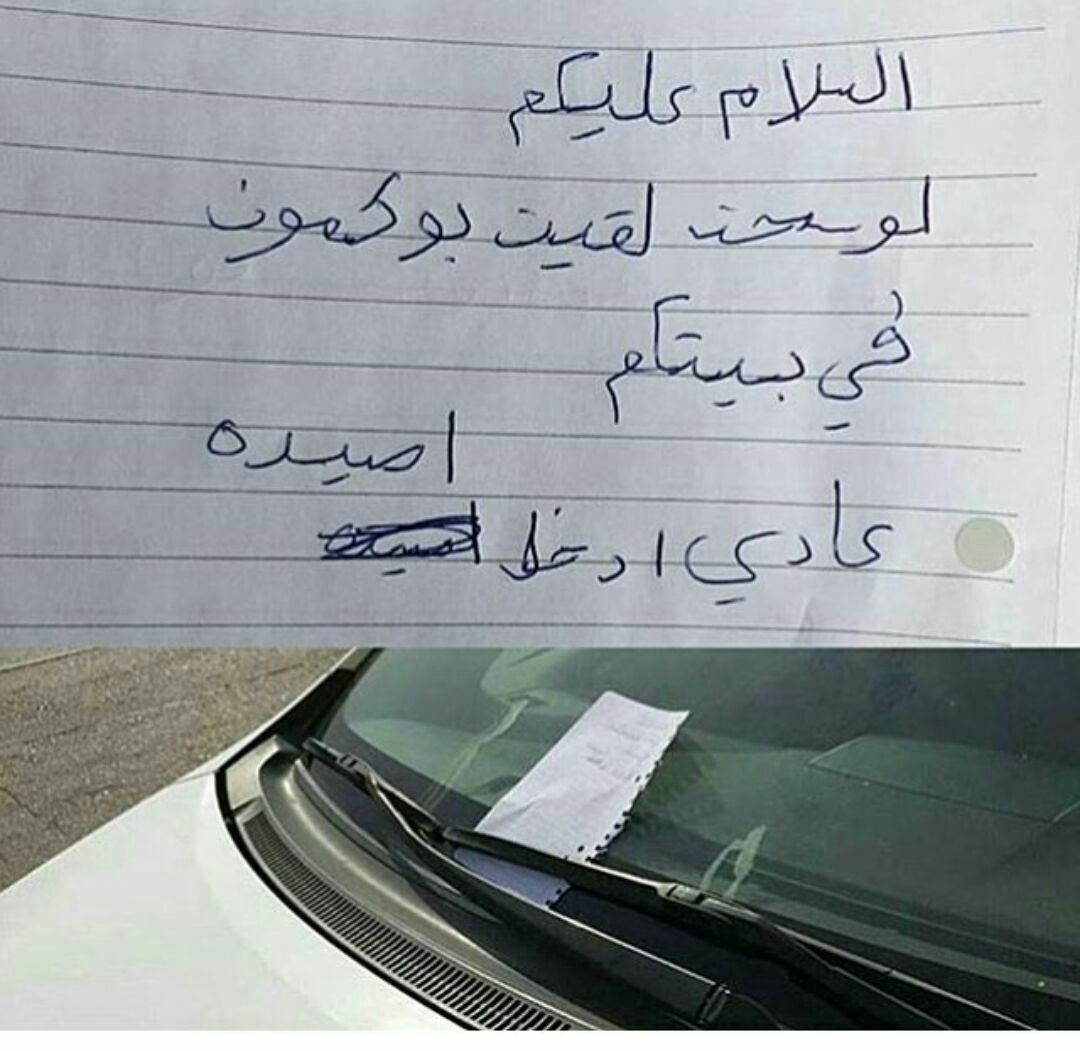 السلام عليكم
لو سمحت لقيت بوكمون
في بيتكم
عادي ادخل اصيده